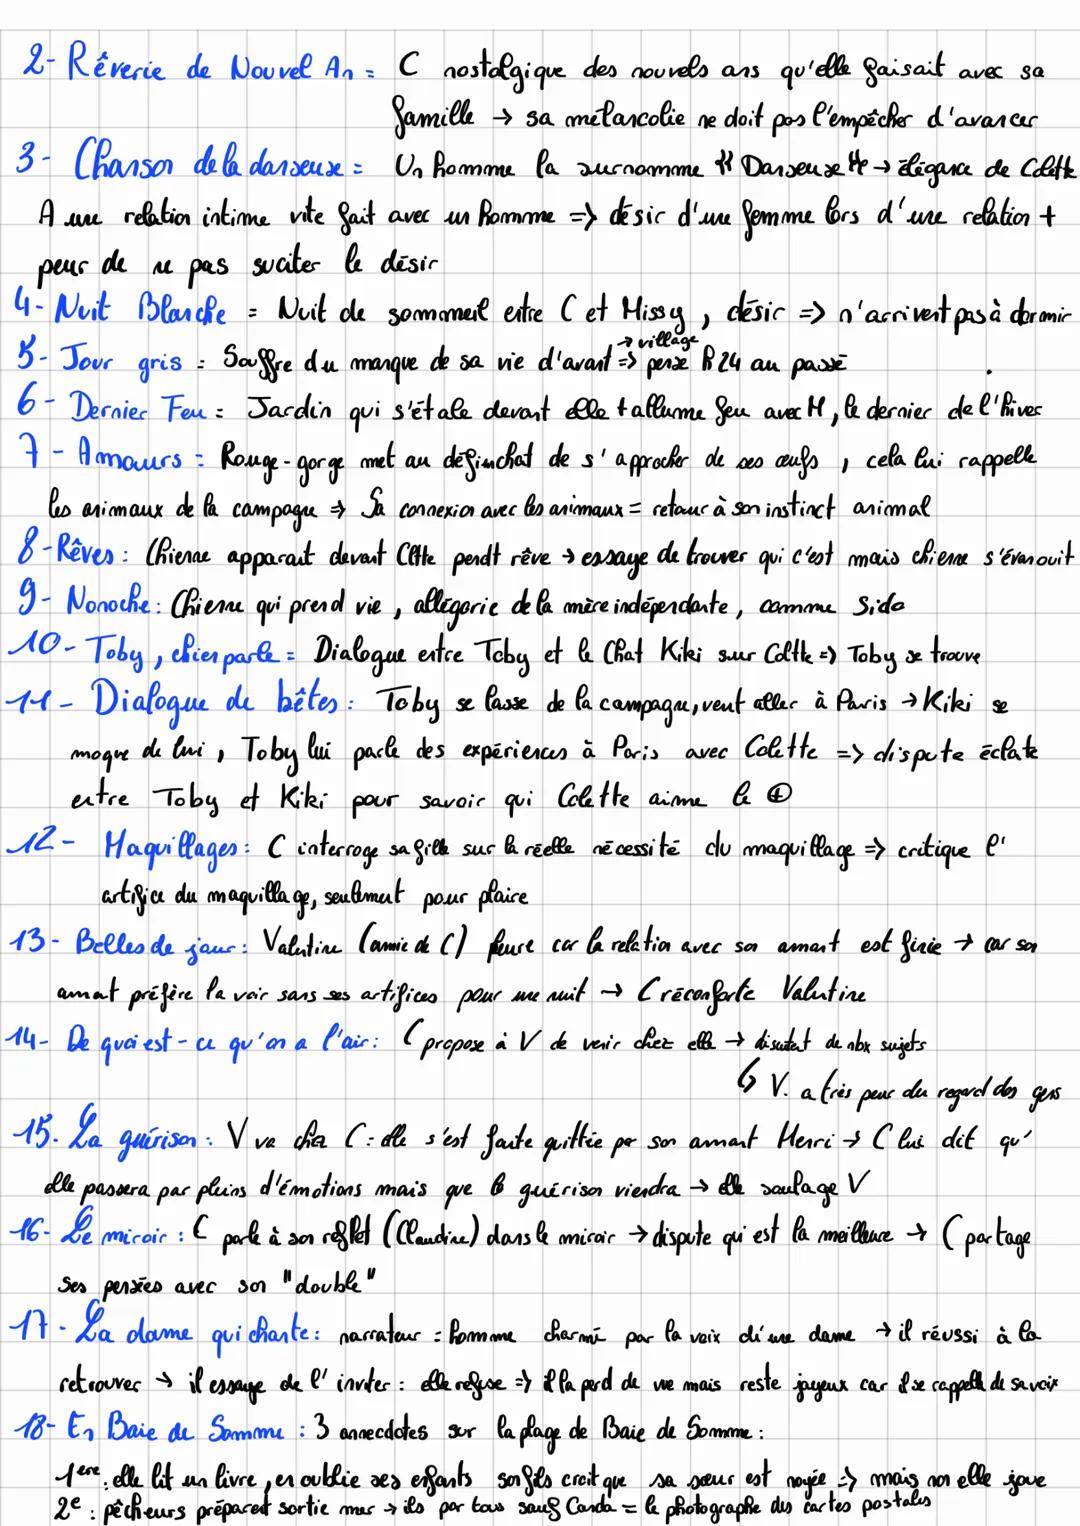 2- Rêverie de Nouvel An = C nostalgique des nouvels ans qu'elle faisait avec sa
famille → sa mélancolie ne doit pas l'empêcher d'avancer
3- Chanson de la danseuse = Un homme la surnomme "Danseuse" → élégance de Colette
A une relation intime vite fait avec un homme => désir d'une femme lors d'une relation +
peur de ne pas suciter le désir
4- Nuit Blanche = Nuit de sommeil entre C et Missy, désir => n'arrivent pas à dormir
→ village
5- Jour gris : Souffre du manque de sa vie d'avant => pense h24 au passé
6- Dernier Feu : Jardin qui s'étale devant elle + allume feu avec M, le dernier de l'hiver
7- Amours : Rouge-gorge met au défi un chat de s'approcher de ses œufs, cela lui rappelle
les animaux de la campagne => Sa connexion avec les animaux = retour à son instinct animal
8- Rêves : Chienne apparait devant Cltte pendt rêve → essaye de trouver qui c'est mais chienne s'évanouit
9- Nonoche : Chienne qui prend vie, allégorie de la mère indépendante, comme Sido
10- Toby, chien parle = Dialogue entre Toby et le Chat Kiki sur Coltte => Toby se trouve
11- Dialogue de bêtes : Toby se lasse de la campagne, veut aller à Paris → Kiki se
moque de lui, Toby lui parle des expériences à Paris avec Colette => dispute éclate
entre Toby et Kiki pour savoir qui Colette aime le ⊕
12- Maquillages : C interroge sa fille sur la réelle nécessité du maquillage => critique l'
artifice du maquillage, seulement pour plaire
13- Belles de jour : Valentine (amie de C) pleure car la relation avec son amant est finie → car son
amant préfère la voir sans ses artifices pour une nuit → C réconforte Valentine
14- De quoi est-ce qu'on a l'air : C propose à V de venir chez elle → discutent de nbx sujets
↳ V. a très peur du regard des gens
15. La guérison : V va chez C : elle s'est faite quittée par son amant Henri → C lui dit qu'
elle passera par pleins d'émotions mais que la guérison viendra → elle soulage V
16- Le miroir : C parle à son reflet (Claudine) dans le miroir → dispute qui est la meilleure → C partage
ses pensées avec son "double"
17- La dame qui chante : narrateur = homme charmé par la voix d'une dame → il réussi à la
retrouver → il essaye de l'inviter : elle refuse => il la perd de vue mais reste joyeux car il se rappelle de sa voix
18- En Baie de Somme : 3 annecdotes sur la plage de Baie de Somme :
1ère : elle lit un livre, en oublie ses enfants son fils croit que sa sœur est noyée => mais non elle joue
2e : pêcheurs préparent sortie mer → ils par tous sauf Canda = le photographe des cartes postales